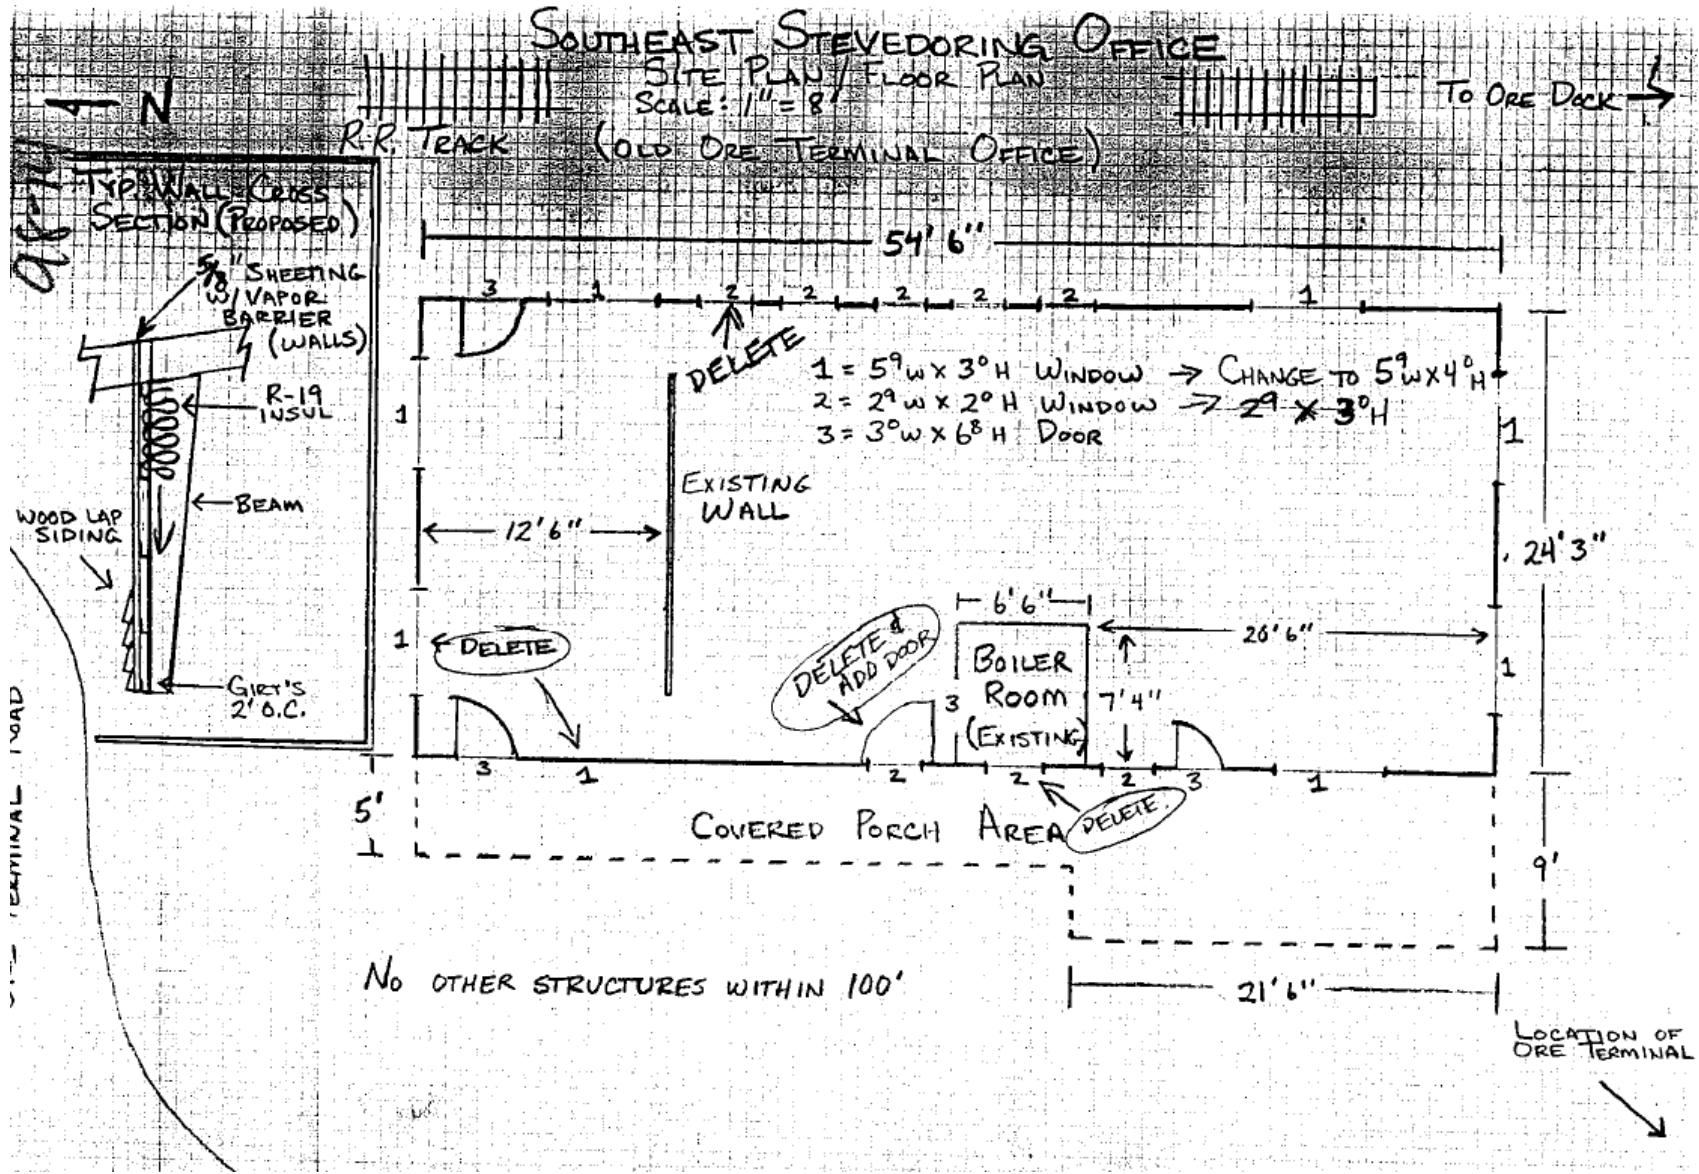 SOUTHEAST STEVEDORING OFFICE
SITE PLAN / FLOOR PLAN
SCALE: 1" = 8'
(OLD ORE TERMINAL OFFICE)
N
R.R. TRACK
TO ORE DOCK
TYP. WALL CROSS
SECTION (PROPOSED)
5/8" SHEETING
W/ VAPOR
BARRIER
(WALLS)
R-19
INSUL
BEAM
WOOD LAP
SIDING
GIRT'S
2' O.C.
TERMINAL ROAD
54' 6"
3 1 2 2 2 2 2 1
DELETE
1 = 5⁹ W X 3⁰ H WINDOW → CHANGE TO 5⁹ W X 4⁰ H
2 = 2⁹ W X 2⁰ H WINDOW → 2⁹ X 3⁰ H
3 = 3⁰ W X 6⁸ H DOOR
1
1
EXISTING
WALL
12' 6"
24' 3"
6' 6"
20' 6"
1
DELETE
DELETE &
ADD DOOR
BOILER
ROOM
(EXISTING)
3
7' 4"
1
3 1 2 2 2 3 1
DELETE
5'
COVERED PORCH AREA
9'
NO OTHER STRUCTURES WITHIN 100'
21' 6"
LOCATION OF
ORE TERMINAL